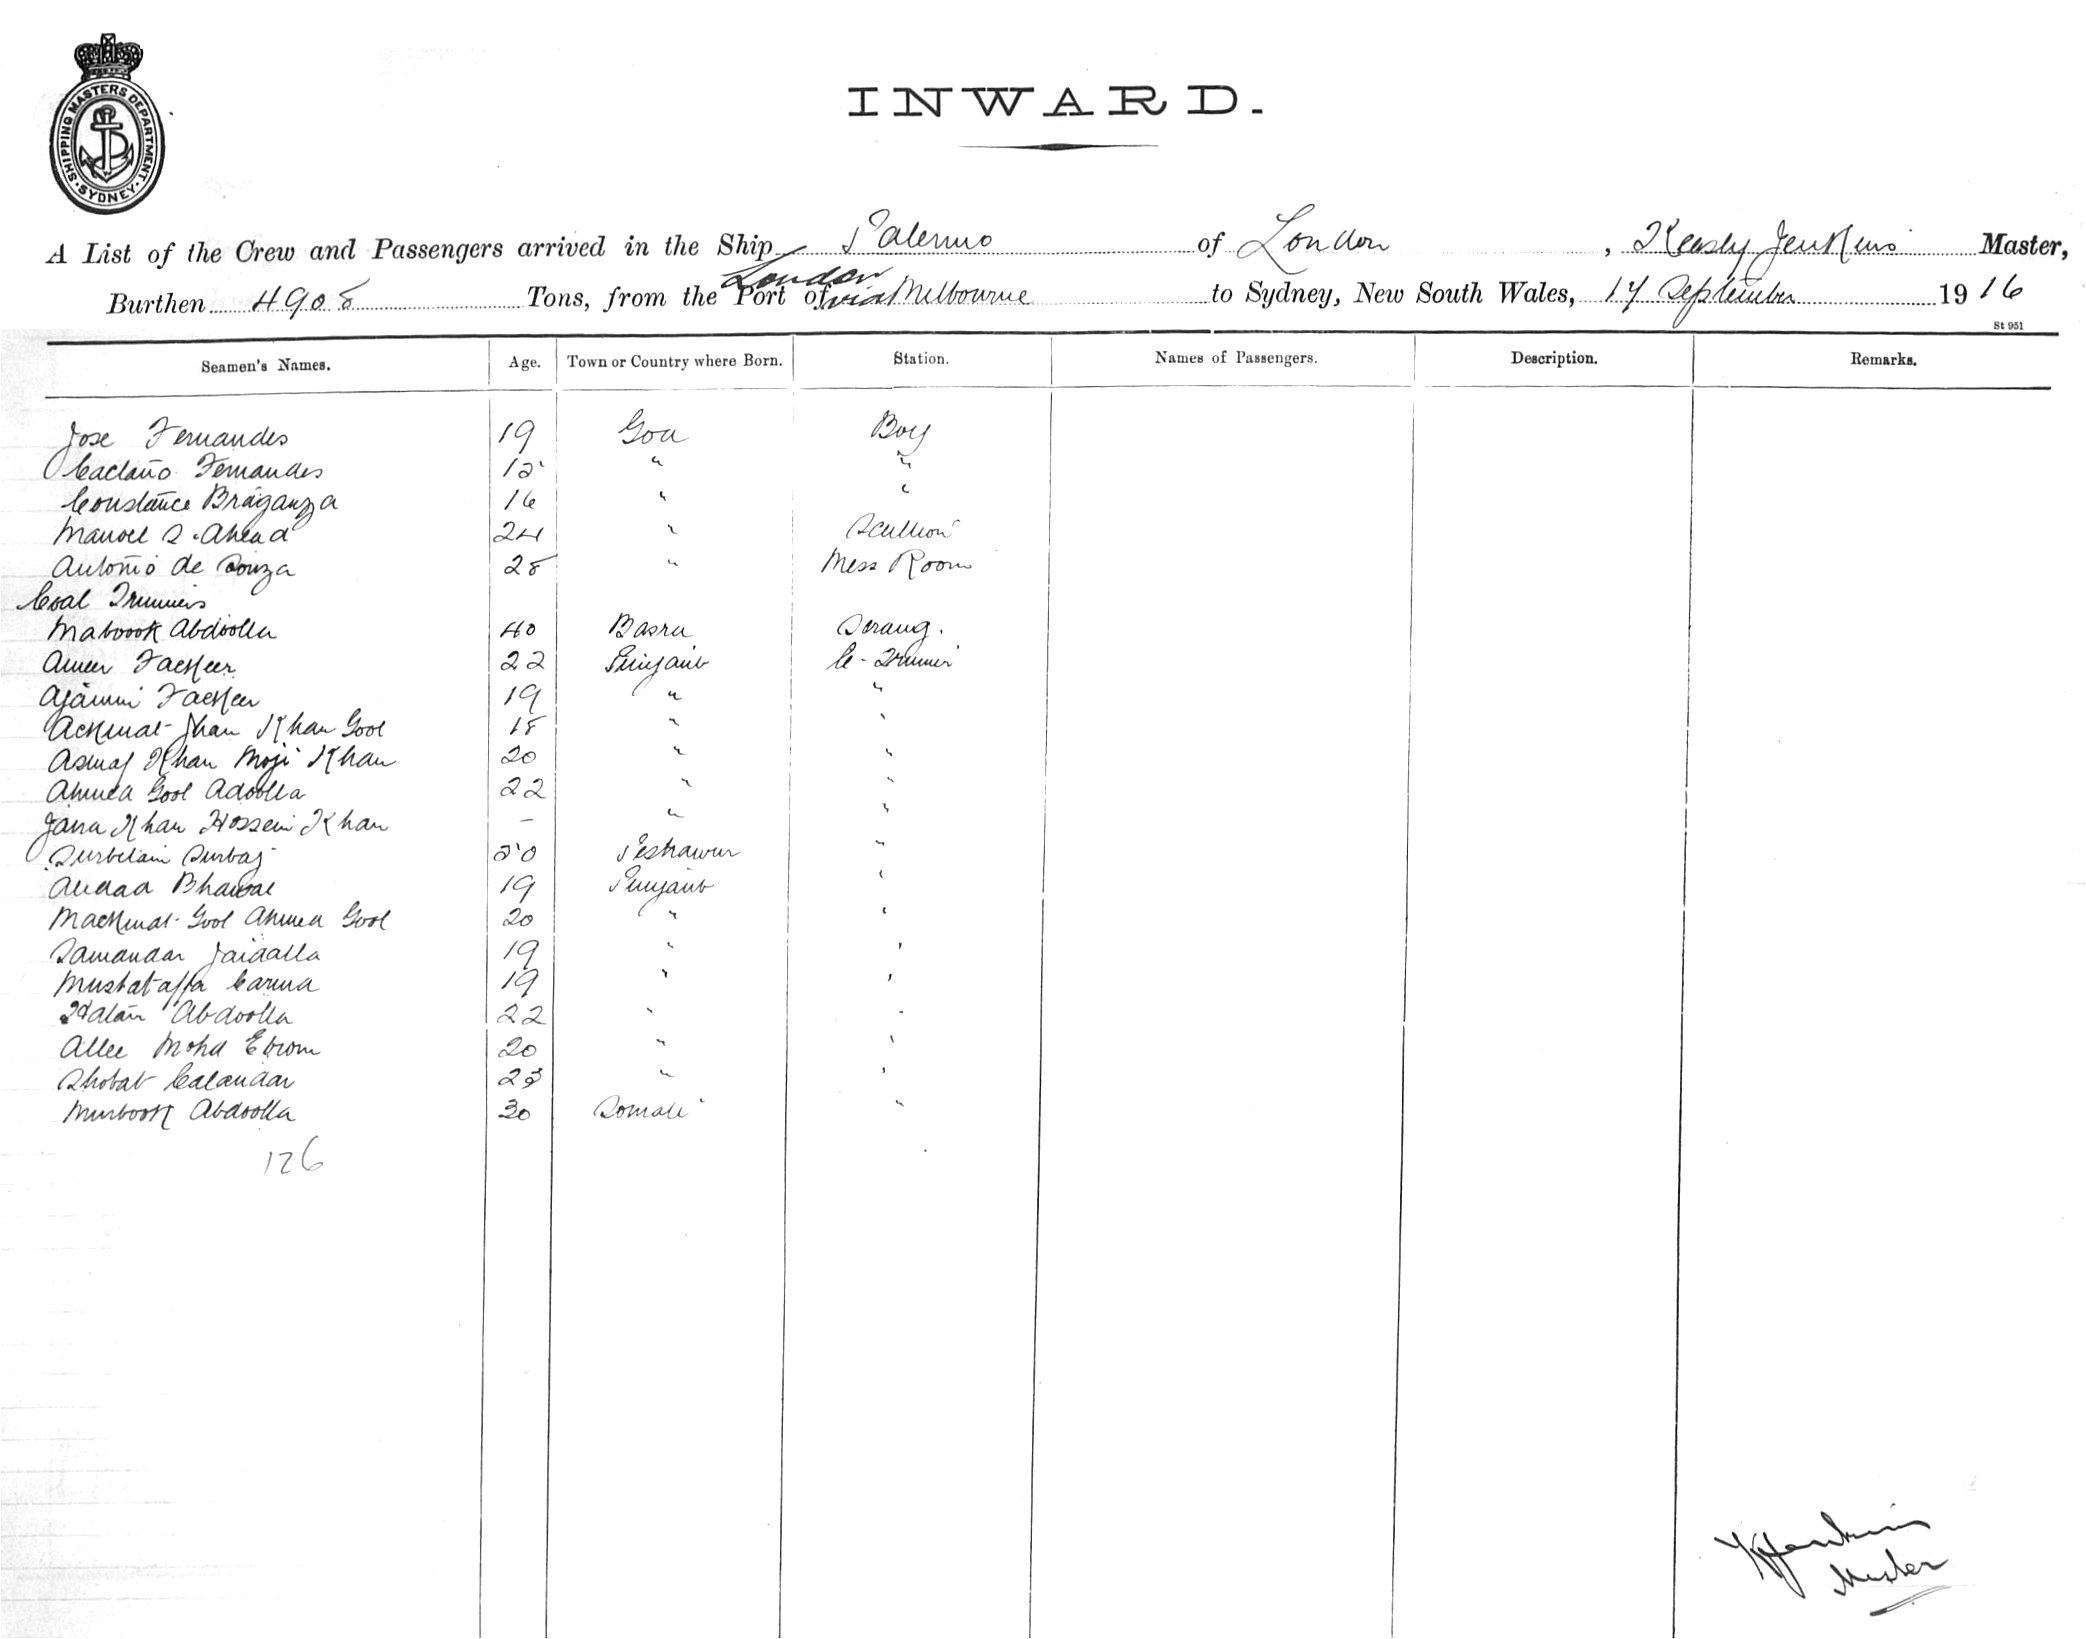 SHIPPING MASTERS DEPARTMENT. SYDNEY.
INWARD.
A List of the Crew and Passengers arrived in the Ship Palermo of London, Jenkins Master,
London
Burthen 4908 Tons, from the Port of via Melbourne to Sydney, New South Wales, 17 September 1916
St 951
Seamen's Names. Age. Town or Country where Born. Station. Names of Passengers. Description. Remarks.
Jose Fernandes 19 Goa Boy
Caetano Fernandes " "
Constance Braganza 16 " "
Manoel S. 24 " Scullion
Antonio de Souza 28 " Mess Room
Coal Trimmers
Mabrook Abdoolla 40 Basra Serang.
Ameer Fackeer 22 Punjaub C-Trimmer
Fackeer 19 " "
Khan Gool 18 " "
Khan Moji Khan 20 " "
Ahmed Gool Adoolla 22 " "
Jana Khan Hossein Khan - " "
Peshawur "
Bhawal 19 Punjaub "
Mackmat Gool Ahmed Gool 20 " "
Samandar Jaidalla 19 " "
Mustataffa Carima 19 " "
Abdoolla 22 " "
Allee Mohd Ebrom 20 " "
Shobat Calandar 23 " "
Murbook Abdoolla 30 Somali "
126
Jenkins
Master